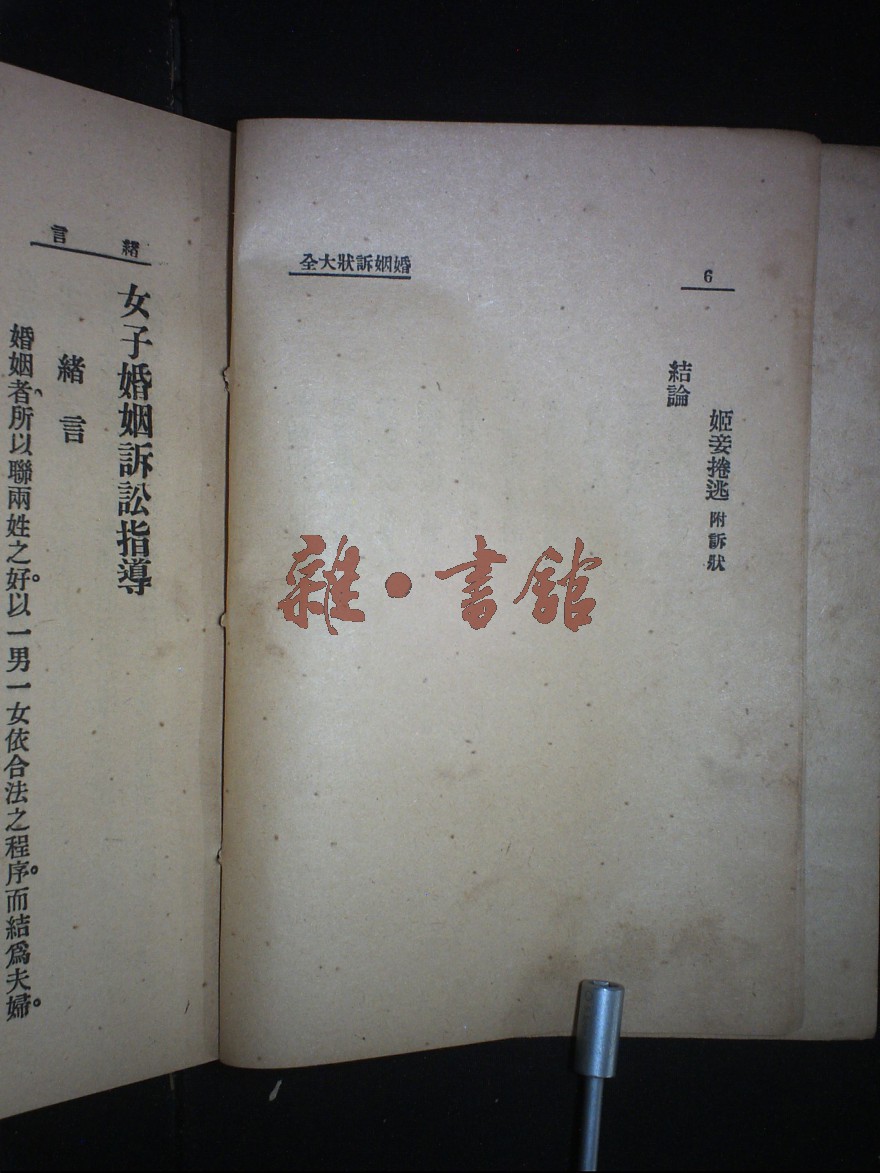 6
婚姻訴狀大全
姬妾捲逃 附訴狀
結論
雜·書舘
緒言
女子婚姻訴訟指導
緒言
婚姻者、所以聯兩姓之好。以一男一女依合法之程序。而結爲夫婦。